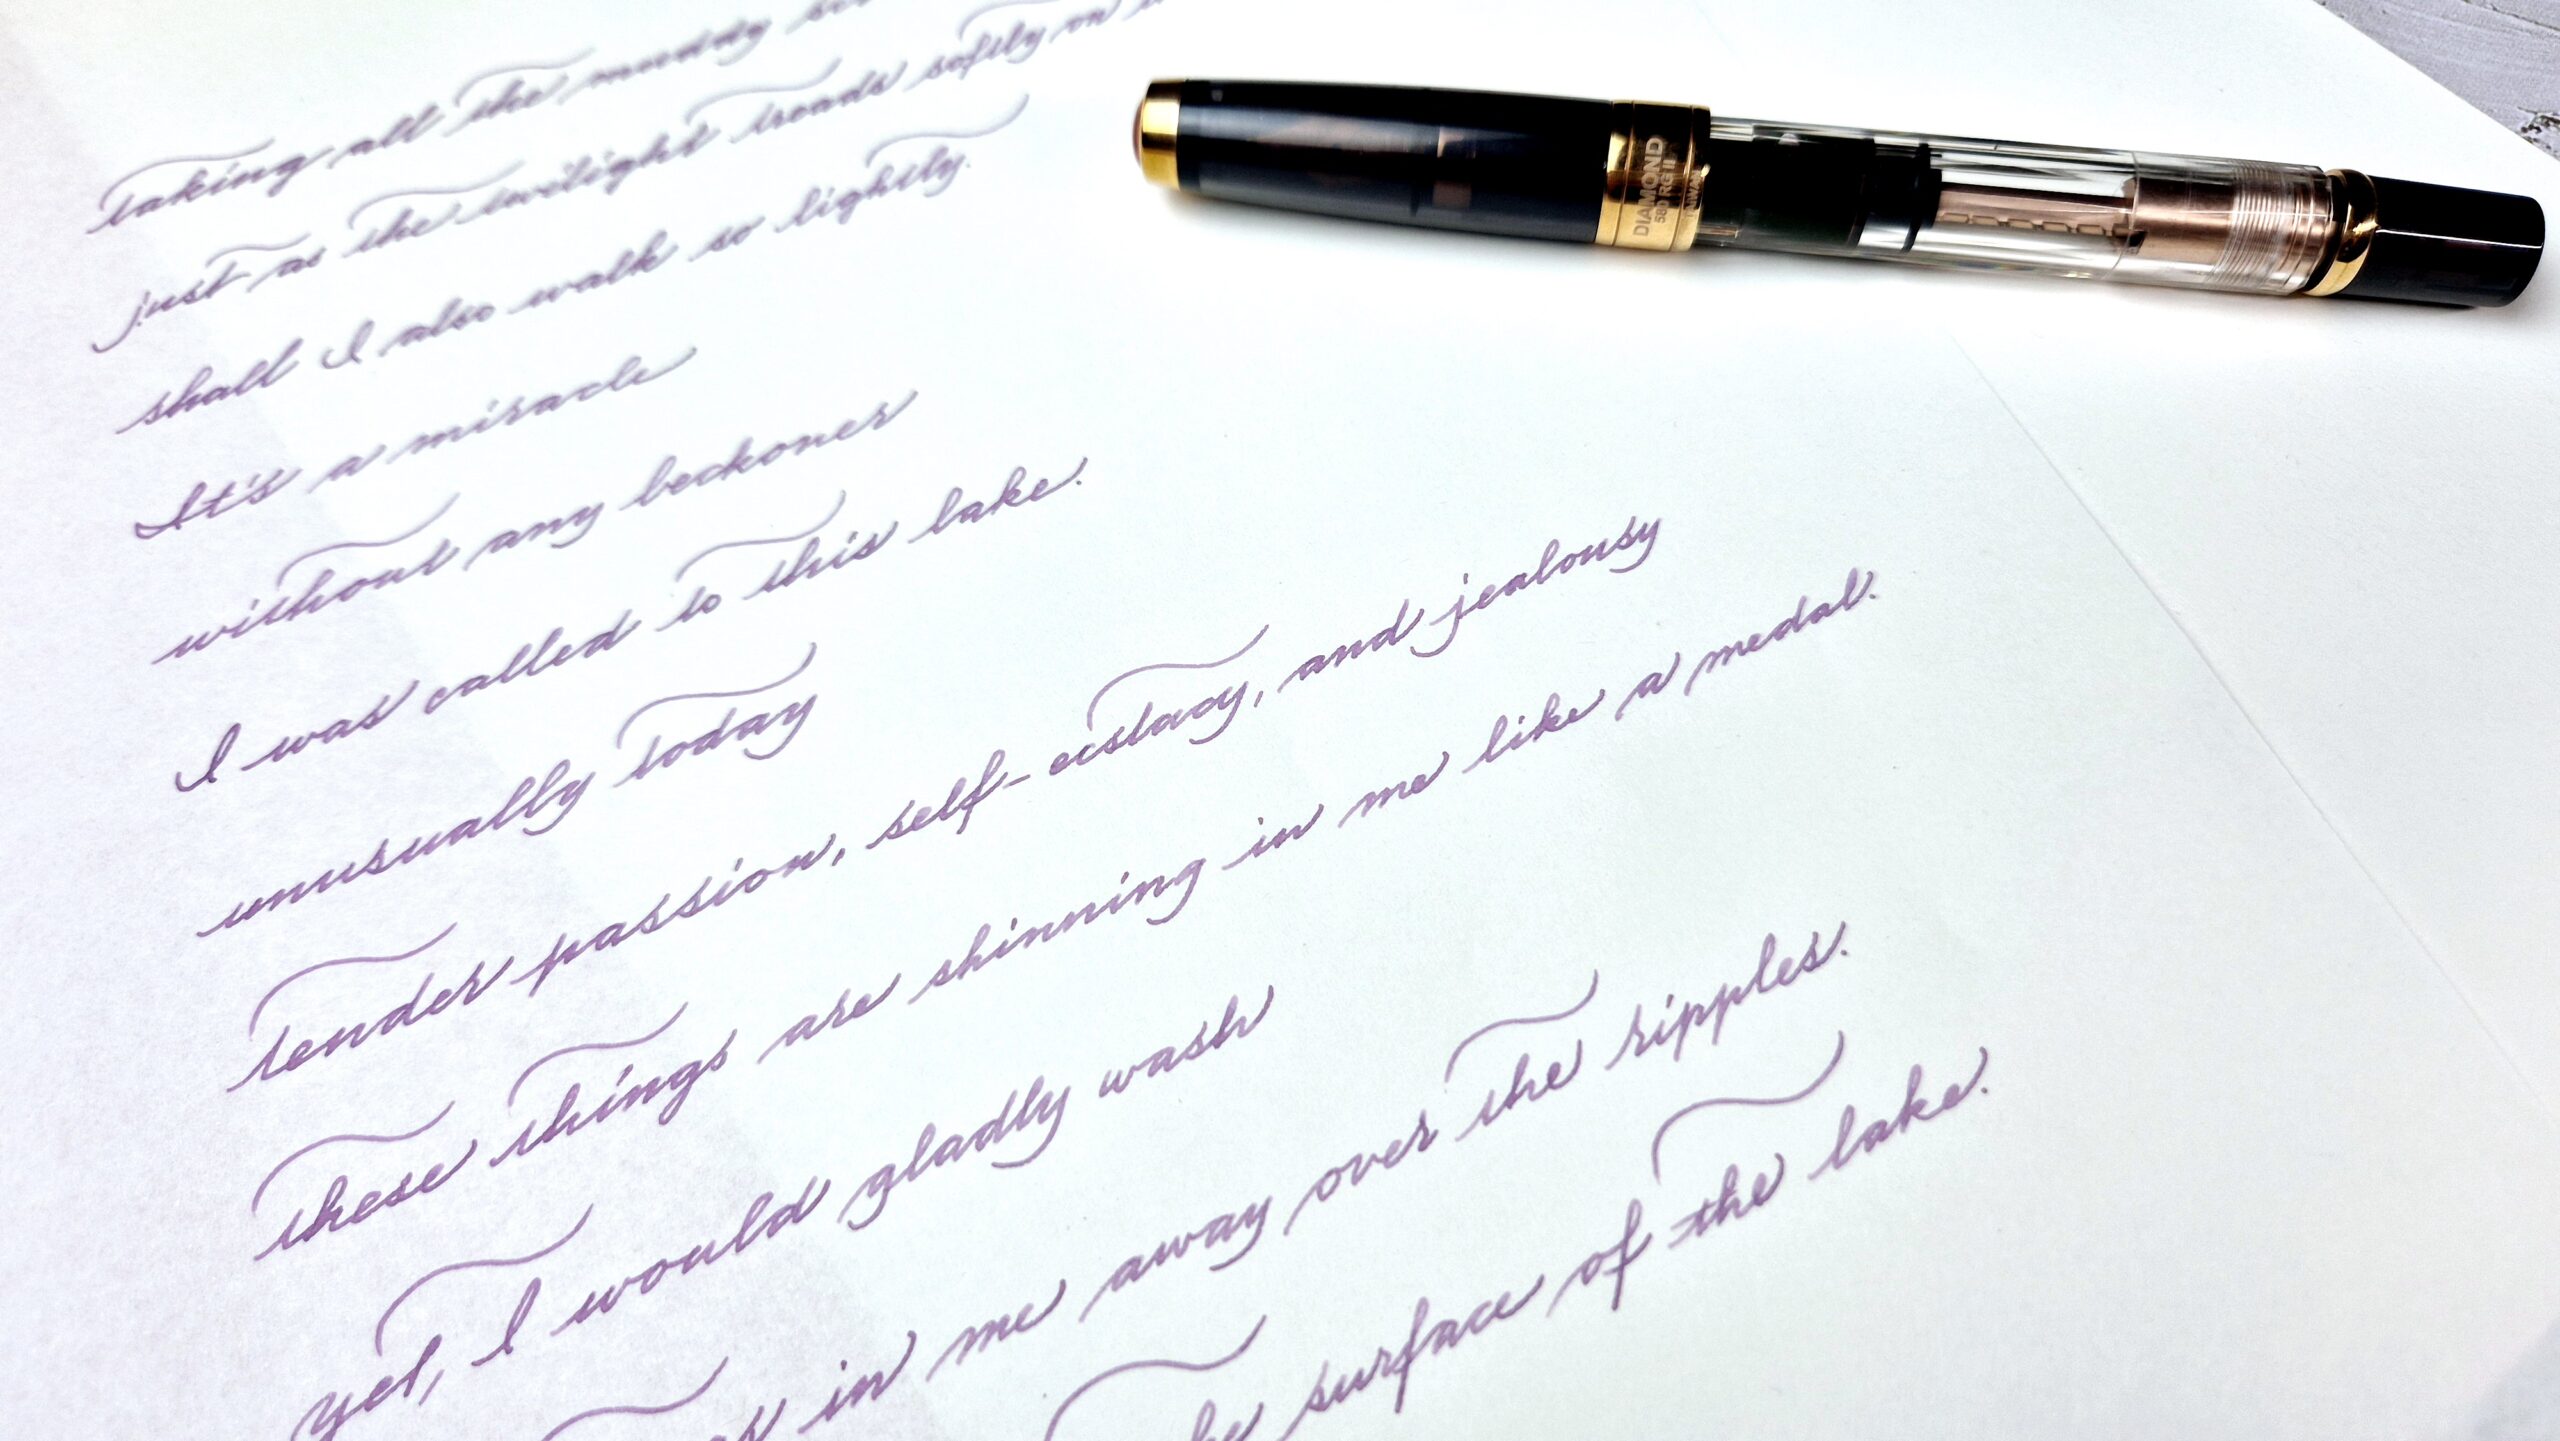 taking all the muddy
just as the twilight treads softly on
shall I also walk so lightly.
It's a miracle
without any beckoner
I was called to this lake.
unusually today
tender passion, self-ecstacy, and jealousy
these things are shinning in me like a medal.
yet, I would gladly wash
in me away over the ripples.
surface of the lake.
DIAMOND
580 RG II
TAIWAN